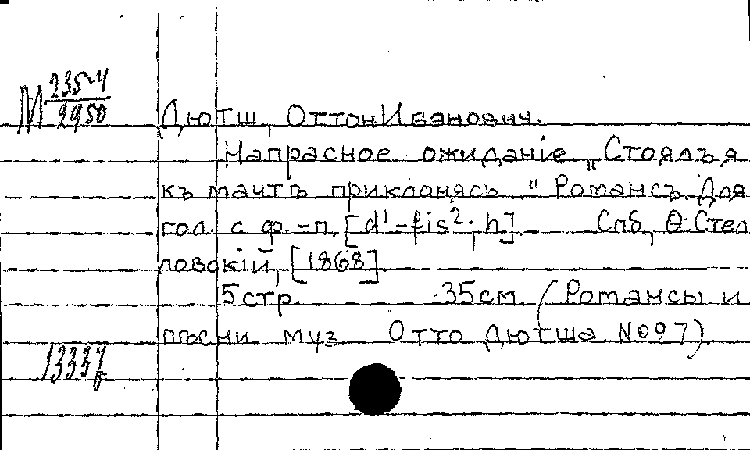 М 235-4
2950
Дютш, Оттон Иванович.
Напрасное ожиданіе „Стоялъ я
къ мачтѣ приклонясь" Романсъ. Для
гол. с ф.-п. [d¹-fis²; h]. Спб, Ѳ Стел
ловскій, [1868]
5 стр. 35 см (Романсы и
пѣсни муз Отто Дютша № 97)